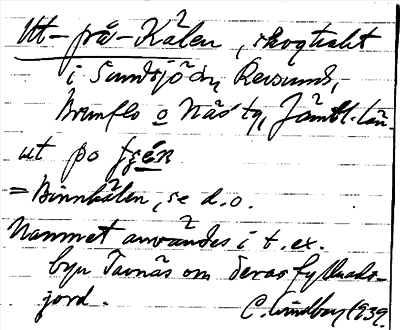 Ut-på-Kälen, skogtrakt
i Sundsjö sn, Revsunds,
Brunflo o Näs tg, Jämtl. län.
ut po
= Binnkälen, se d.o.
Namnet användes i t. ex.
byn Tavnäs om deras
jord. C. Lindberg 1939.